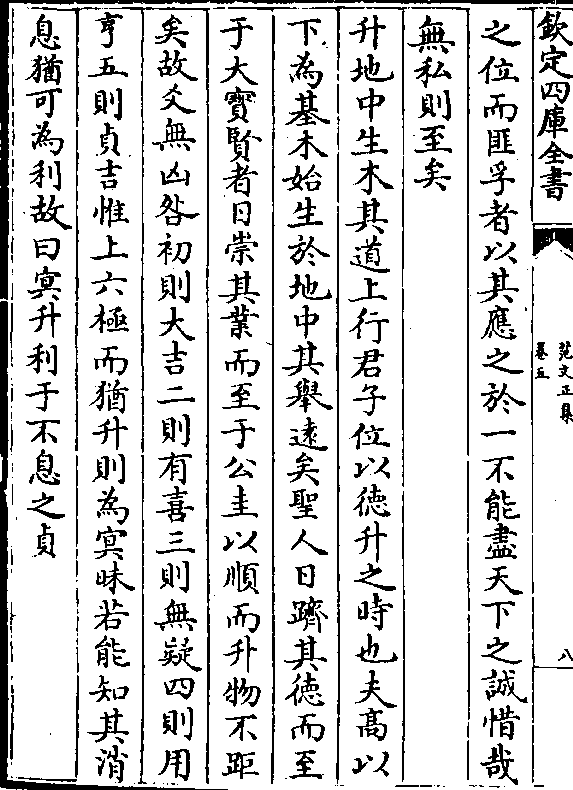 欽定四庫全書
范文正集
卷五
八
之位而匪孚者以其應之於一不能盡天下之誠惜哉
無私則至矣
升地中生木其道上行君子位以德升之時也夫髙以
下為基木始生於地中其舉遠矣聖人日躋其德而至
于大寶賢者日崇其業而至于公圭以順而升物不距
矣故爻無凶咎初則大吉二則有喜三則無疑四則用
亨五則貞吉惟上六極而猶升則為冥昧若能知其消
息猶可為利故曰冥升利于不息之貞